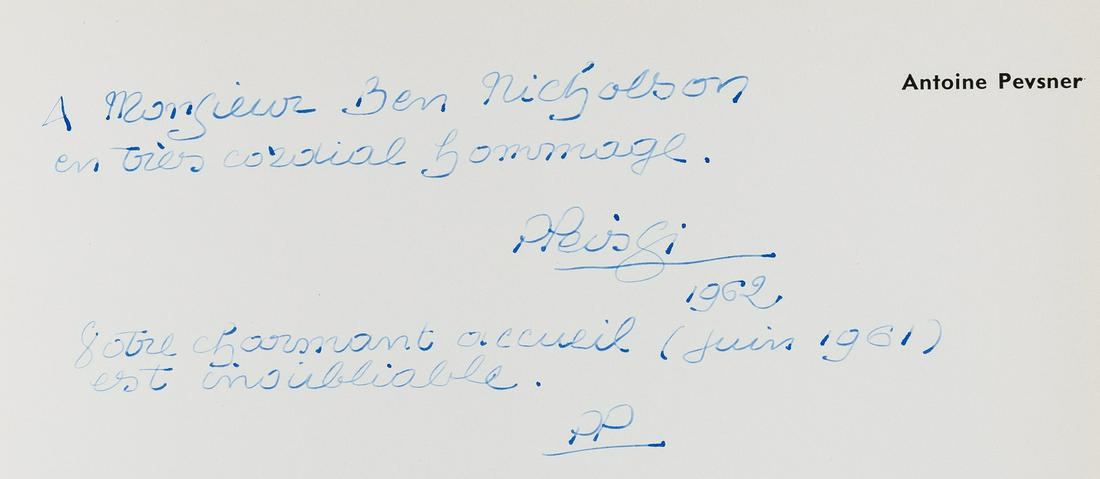 Antoine Pevsner
A Monsieur Ben Nicholson
en très cordial hommage.
PPeissi
1962
Votre charmant accueil (juin 1961)
est inoubliable.
PP